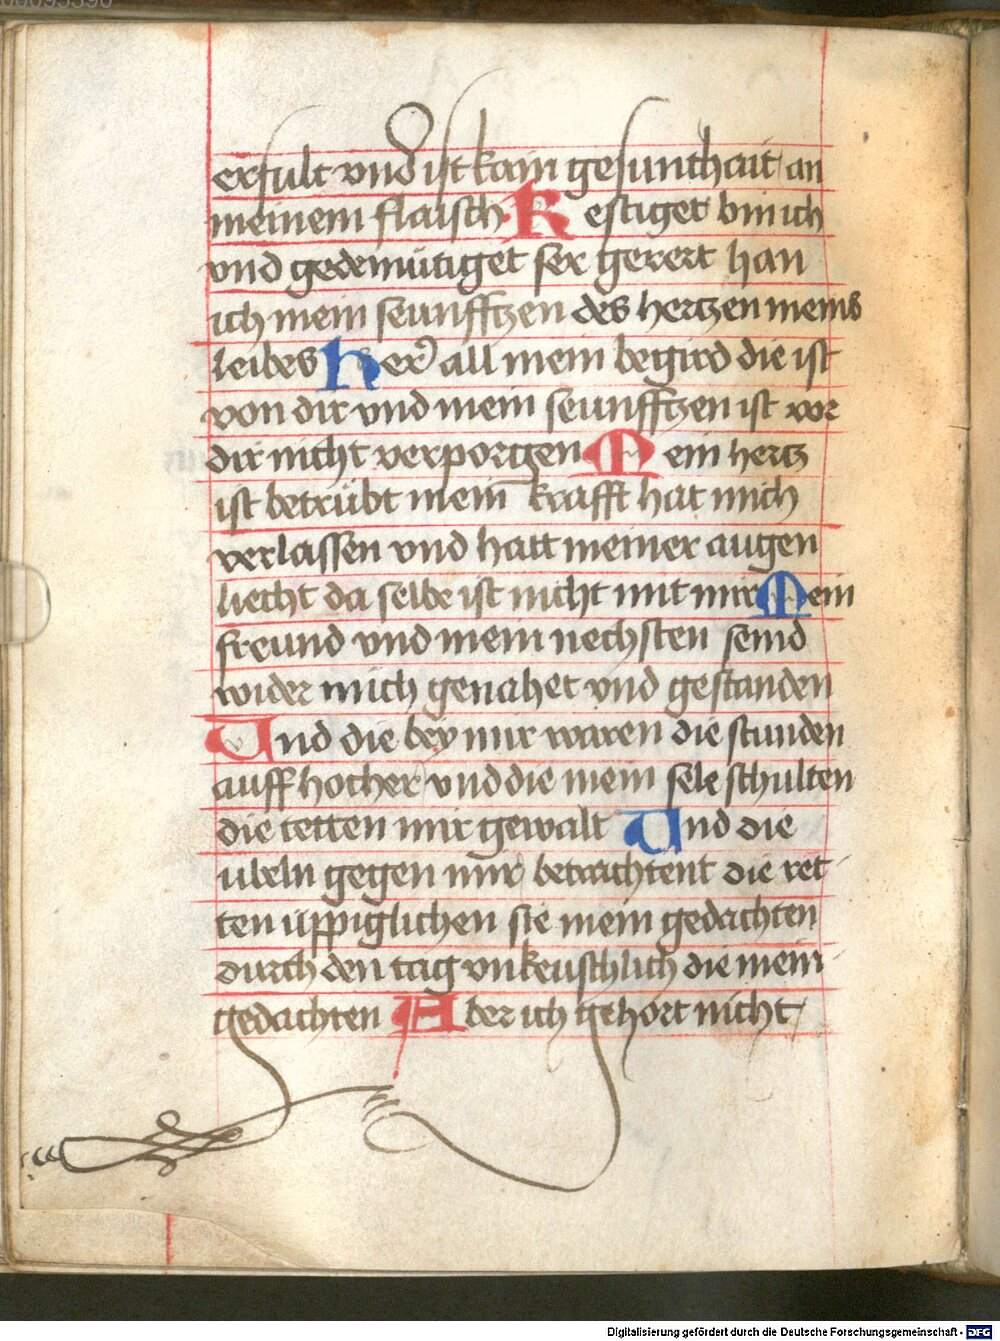 erfult vnd ist kain gesunthait an
meinem flaisch Kestiget bin ich
vnd gedemütiget ser gerert han
ich mein seunfftzen des hertzen meins
leibes her all mein begird die ist
von dir vnd mein seunfftzen ist vor
dir nicht verporgen Mein hertz
ist betrübt mein krafft hat mich
verlassen vnd hatt meiner augen
liecht da selbe ist nicht mit mir Mein
freund vnd mein nechsten seind
wider mich genahet vnd gestanden
Vnd die bey mir waren die stunden
auff hocher vnd die mein sele schulten
die tetten mir gewalt Vnd die
ubeln gegen mir betrachtent die ret
ten üppiglichen sie mein gedachten
durch den tag vnkeuschlich die mein
gedachten Aber ich gehort nicht
Digitalisierung gefördert durch die Deutsche Forschungsgemeinschaft - DFG